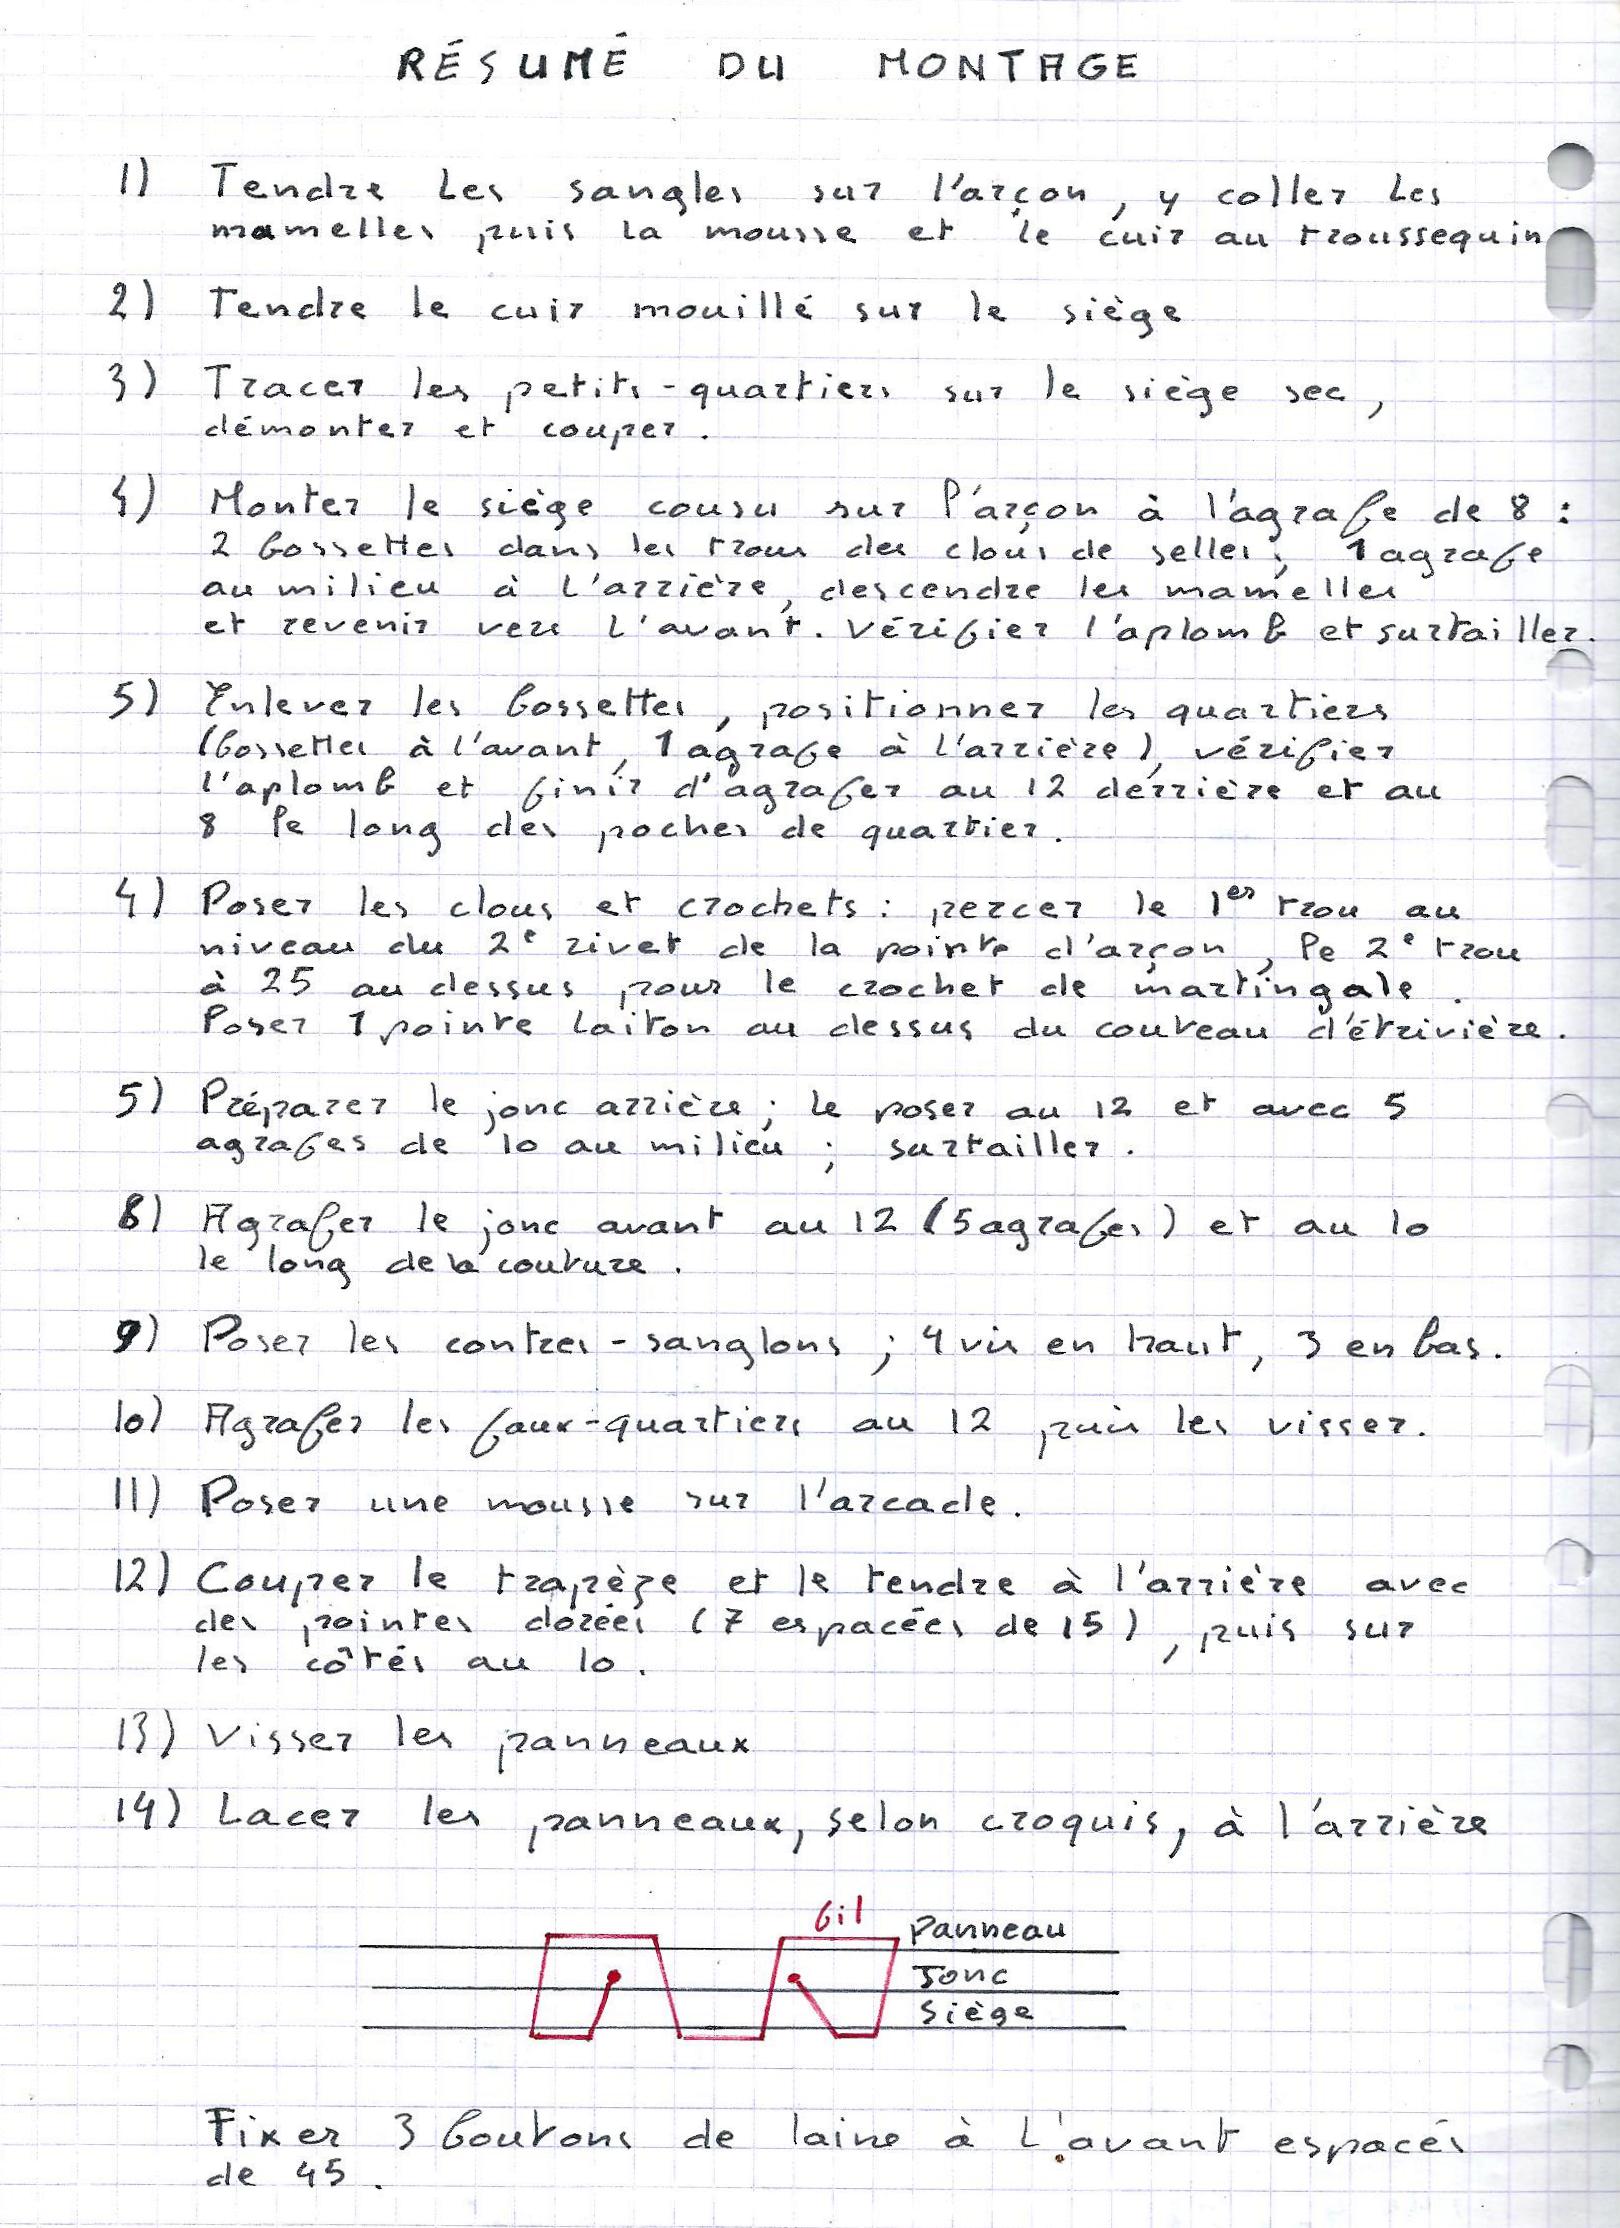 RÉSUMÉ DU MONTAGE
1) Tendre les sangles sur l'arçon, y coller les
mamelles puis la mousse et le cuir au troussequin
2) Tendre le cuir mouillé sur le siège
3) Tracer les petits-quartiers sur le siège sec,
démonter et couper.
4) Monter le siège cousu sur l'arçon à l'agrafe de 8 :
2 bossettes dans les trous des clous de selles, 1 agrafe
au milieu à l'arrière, descendre les mamelles
et revenir vers l'avant. Vérifier l'aplomb et surtailler.
5) Enlever les bossettes, positionner les quartiers
(bossettes à l'avant, 1 agrafe à l'arrière), vérifier
l'aplomb et finir d'agrafer au 12 derrière et au
8 le long des poches de quartier.
4) Poser les clous et crochets : percer le 1er trou au
niveau du 2e rivet de la pointe d'arçon, le 2e trou
à 25 au dessus pour le crochet de martingale.
Poser 1 pointe laiton au dessus du couteau d'étrivière.
5) Préparer le jonc arrière ; le poser au 12 et avec 5
agrafes de 10 au milieu ; surtailler.
8) Agrafer le jonc avant au 12 (5 agrafes) et au 10
le long de la couture.
9) Poser les contres-sanglons ; 4 vis en haut, 3 en bas.
10) Agrafer les faux-quartiers au 12 puis les visser.
11) Poser une mousse sur l'arcade.
12) Couper le trapèze et le tendre à l'arrière avec
des pointes dorées (7 espacées de 15), puis sur
les côtés au 10.
13) Visser les panneaux
14) Lacer les panneaux, selon croquis, à l'arrière
fil
Panneau
Jonc
Siège
Fixer 3 boutons de laine à l'avant espacés
de 45.